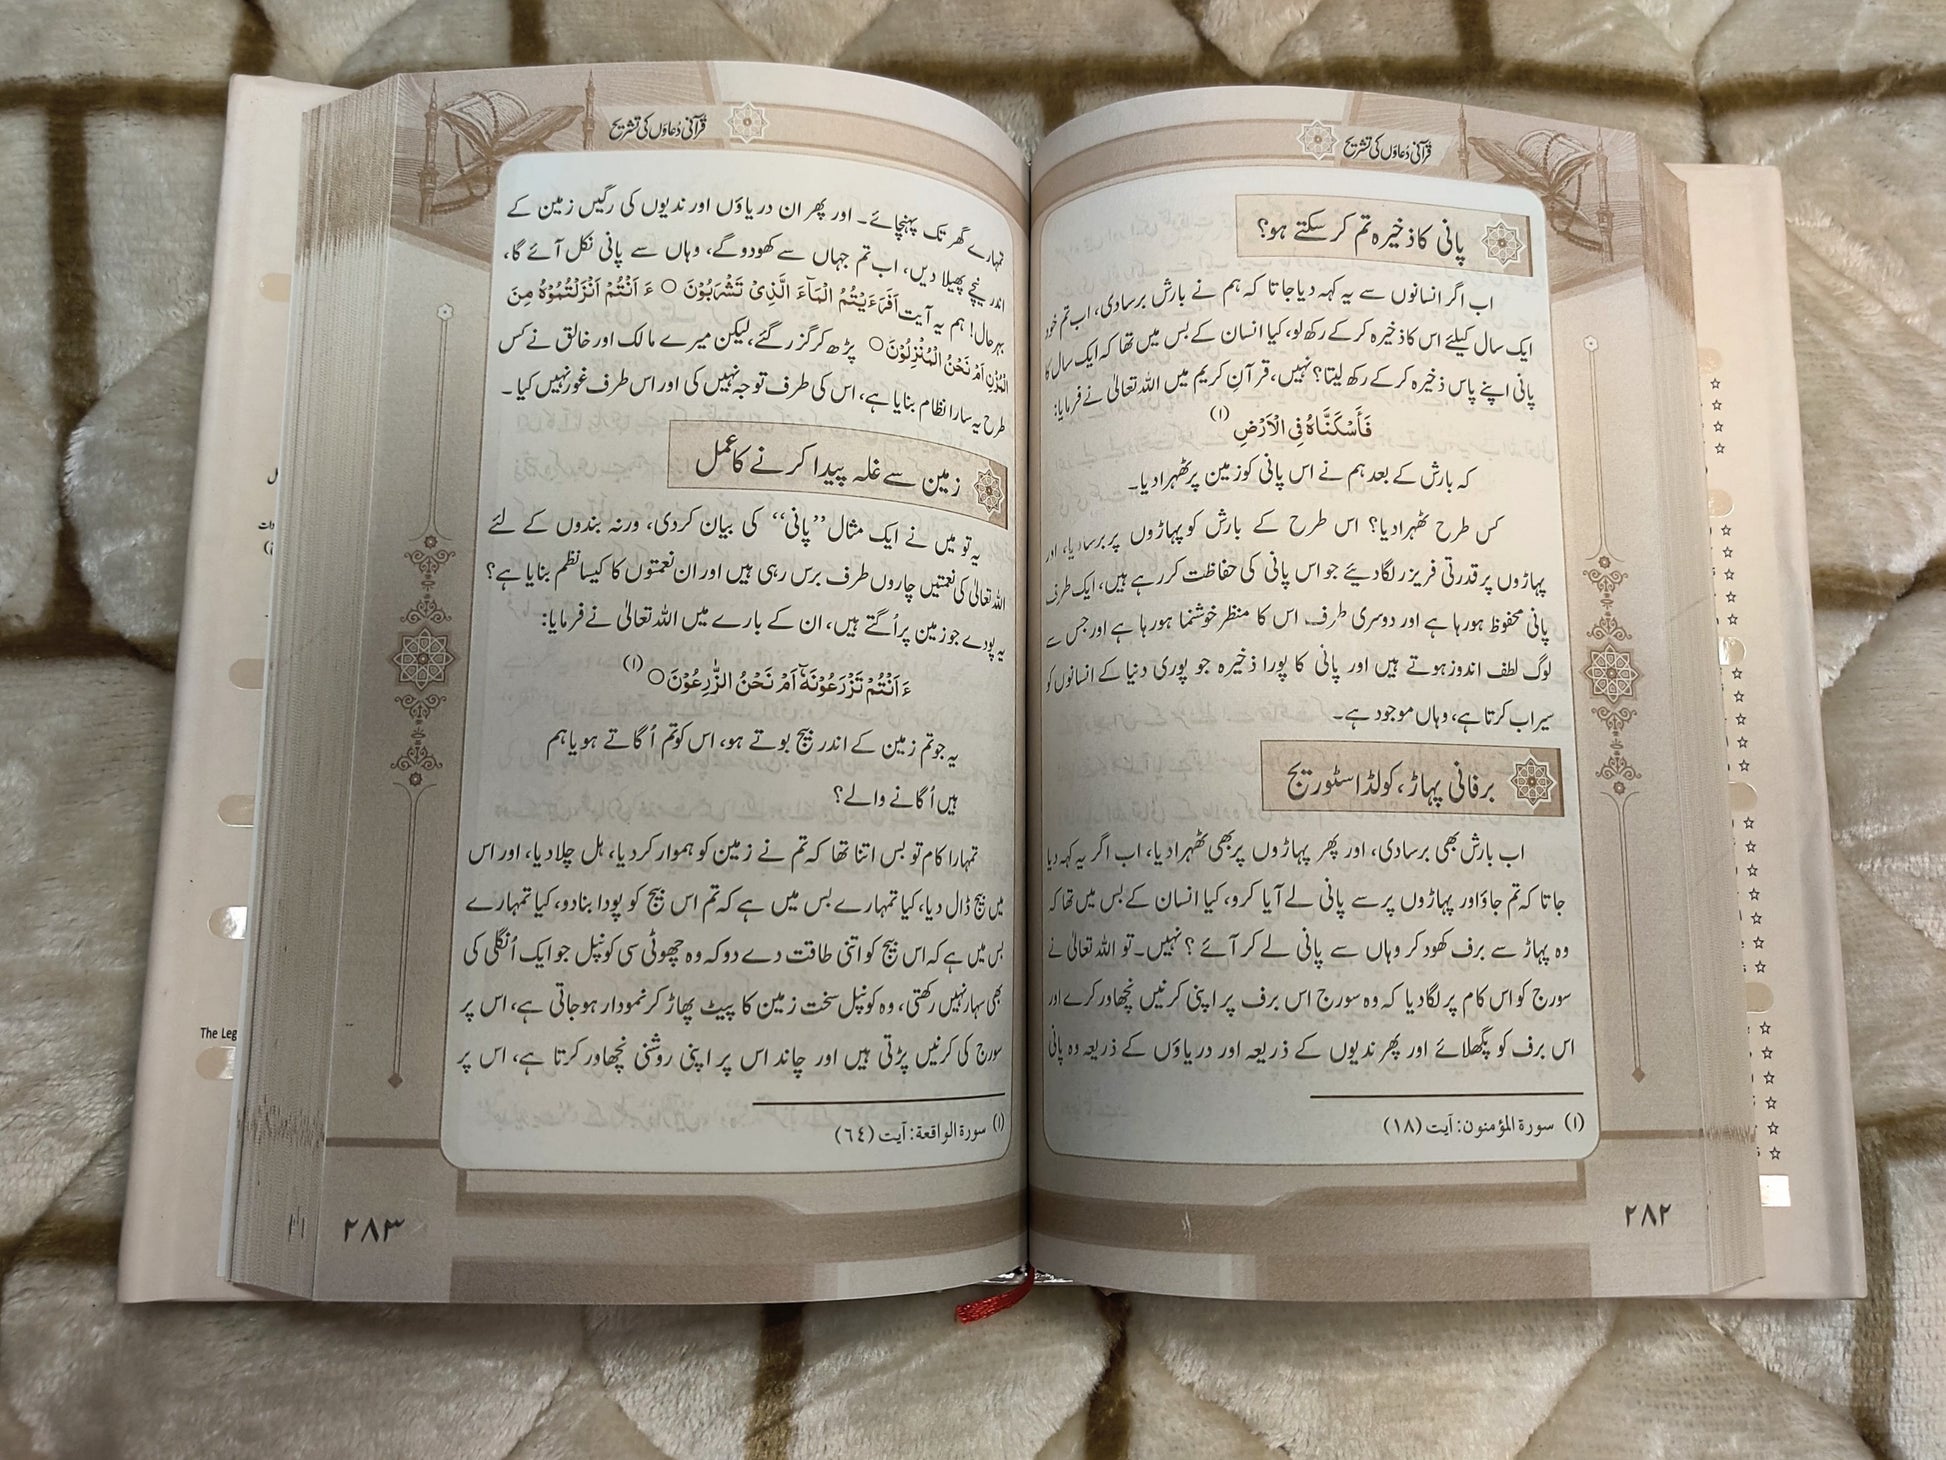 قرآنی دُعاؤں کی تشریح
پانی کا ذخیرہ تم کر سکتے ہو؟
اب اگر انسانوں سے یہ کہہ دیا جاتا کہ ہم نے بارش برسادی، اب تم خود
ایک سال کیلئے اس کا ذخیرہ کر کے رکھ لو، کیا انسان کے بس میں تھا کہ ایک سال کا
پانی اپنے پاس ذخیرہ کر کے رکھ لیتا؟ نہیں، قرآنِ کریم میں اللہ تعالیٰ نے فرمایا:
فَأَسْكَنَّاهُ فِي الْاَرْضِ (۱)
کہ بارش کے بعد ہم نے اس پانی کو زمین پر ٹھہرا دیا۔
کس طرح ٹھہرا دیا؟ اس طرح کے بارش کو پہاڑوں پر برسا دیا، اور
پہاڑوں پر قدرتی فریزر لگا دیئے جو اس پانی کی حفاظت کر رہے ہیں، ایک طرف
پانی محفوظ ہو رہا ہے اور دوسری طرف اس کا منظر خوشنما ہو رہا ہے اور جس سے
لوگ لطف اندوز ہوتے ہیں اور پانی کا پورا ذخیرہ جو پوری دنیا کے انسانوں کو
سیراب کرتا ہے، وہاں موجود ہے۔
برفانی پہاڑ، کولڈ اسٹوریج
اب بارش بھی برسادی، اور پھر پہاڑوں پر بھی ٹھہرا دیا، اب اگر یہ کہہ دیا
جاتا کہ تم جاؤ اور پہاڑوں پر سے پانی لے آیا کرو، کیا انسان کے بس میں تھا کہ
وہ پہاڑ سے برف کھود کر وہاں سے پانی لے کر آئے ؟ نہیں۔ تو اللہ تعالیٰ نے
سورج کو اس کام پر لگا دیا کہ وہ سورج اس برف پر اپنی کرنیں نچھاور کرے اور
اس برف کو پگھلائے اور پھر ندیوں کے ذریعہ اور دریاؤں کے ذریعہ وہ پانی
(۱) سورة المؤمنون: آیت (۱۸)
۲۸۲
قرآنی دُعاؤں کی تشریح
تمہارے گھر تک پہنچائے۔ اور پھر ان دریاؤں اور ندیوں کی رگیں زمین کے
اندر نیچے پھیلا دیں، اب تم جہاں سے کھودو گے، وہاں سے پانی نکل آئے گا،
بہر حال! ہم یہ آیت اَفَرَءَيْتُمُ الْمَآءَ الَّذِىْ تَشْرَبُوْنَ ○ ءَ اَنْتُمْ اَنْزَلْتُمُوْهُ مِنَ
الْمُزْنِ اَمْ نَحْنُ الْمُنْزِلُوْنَ ○ پڑھ کر گزر گئے، لیکن میرے مالک اور خالق نے کس
طرح یہ سارا نظام بنایا ہے، اس کی طرف توجہ نہیں کی اور اس طرف غور نہیں کیا ۔
زمین سے غلہ پیدا کرنے کا عمل
یہ تو میں نے ایک مثال ”پانی“ کی بیان کردی، ورنہ بندوں کے لئے
اللہ تعالیٰ کی نعمتیں چاروں طرف برس رہی ہیں اور ان نعمتوں کا کیسا نظم بنایا ہے؟
یہ پودے جو زمین پر اُگتے ہیں، ان کے بارے میں اللہ تعالیٰ نے فرمایا:
ءَ اَنْتُمْ تَزْرَعُوْنَهٗٓ اَمْ نَحْنُ الزّٰرِعُوْنَ ○ (۱)
یہ جو تم زمین کے اندر بیج بوتے ہو، اس کو تم اُگاتے ہو یا ہم
ہیں اُگانے والے؟
تمہارا کام تو بس اتنا تھا کہ تم نے زمین کو ہموار کر دیا، ہل چلا دیا، اور اس
میں بیج ڈال دیا، کیا تمہارے بس میں ہے کہ تم اس بیج کو پودا بنا دو، کیا تمہارے
بس میں ہے کہ اس بیج کو اتنی طاقت دے دو کہ وہ چھوٹی سی کونپل جو ایک اُنگلی کی
بھی سہار نہیں رکھتی، وہ کونپل سخت زمین کا پیٹ پھاڑ کر نمودار ہو جاتی ہے، اس پر
سورج کی کرنیں پڑتی ہیں اور چاند اس پر اپنی روشنی نچھاور کرتا ہے، اس پر
(۱) سورة الواقعة: آیت (٦٤)
۲۸۳
The Leg